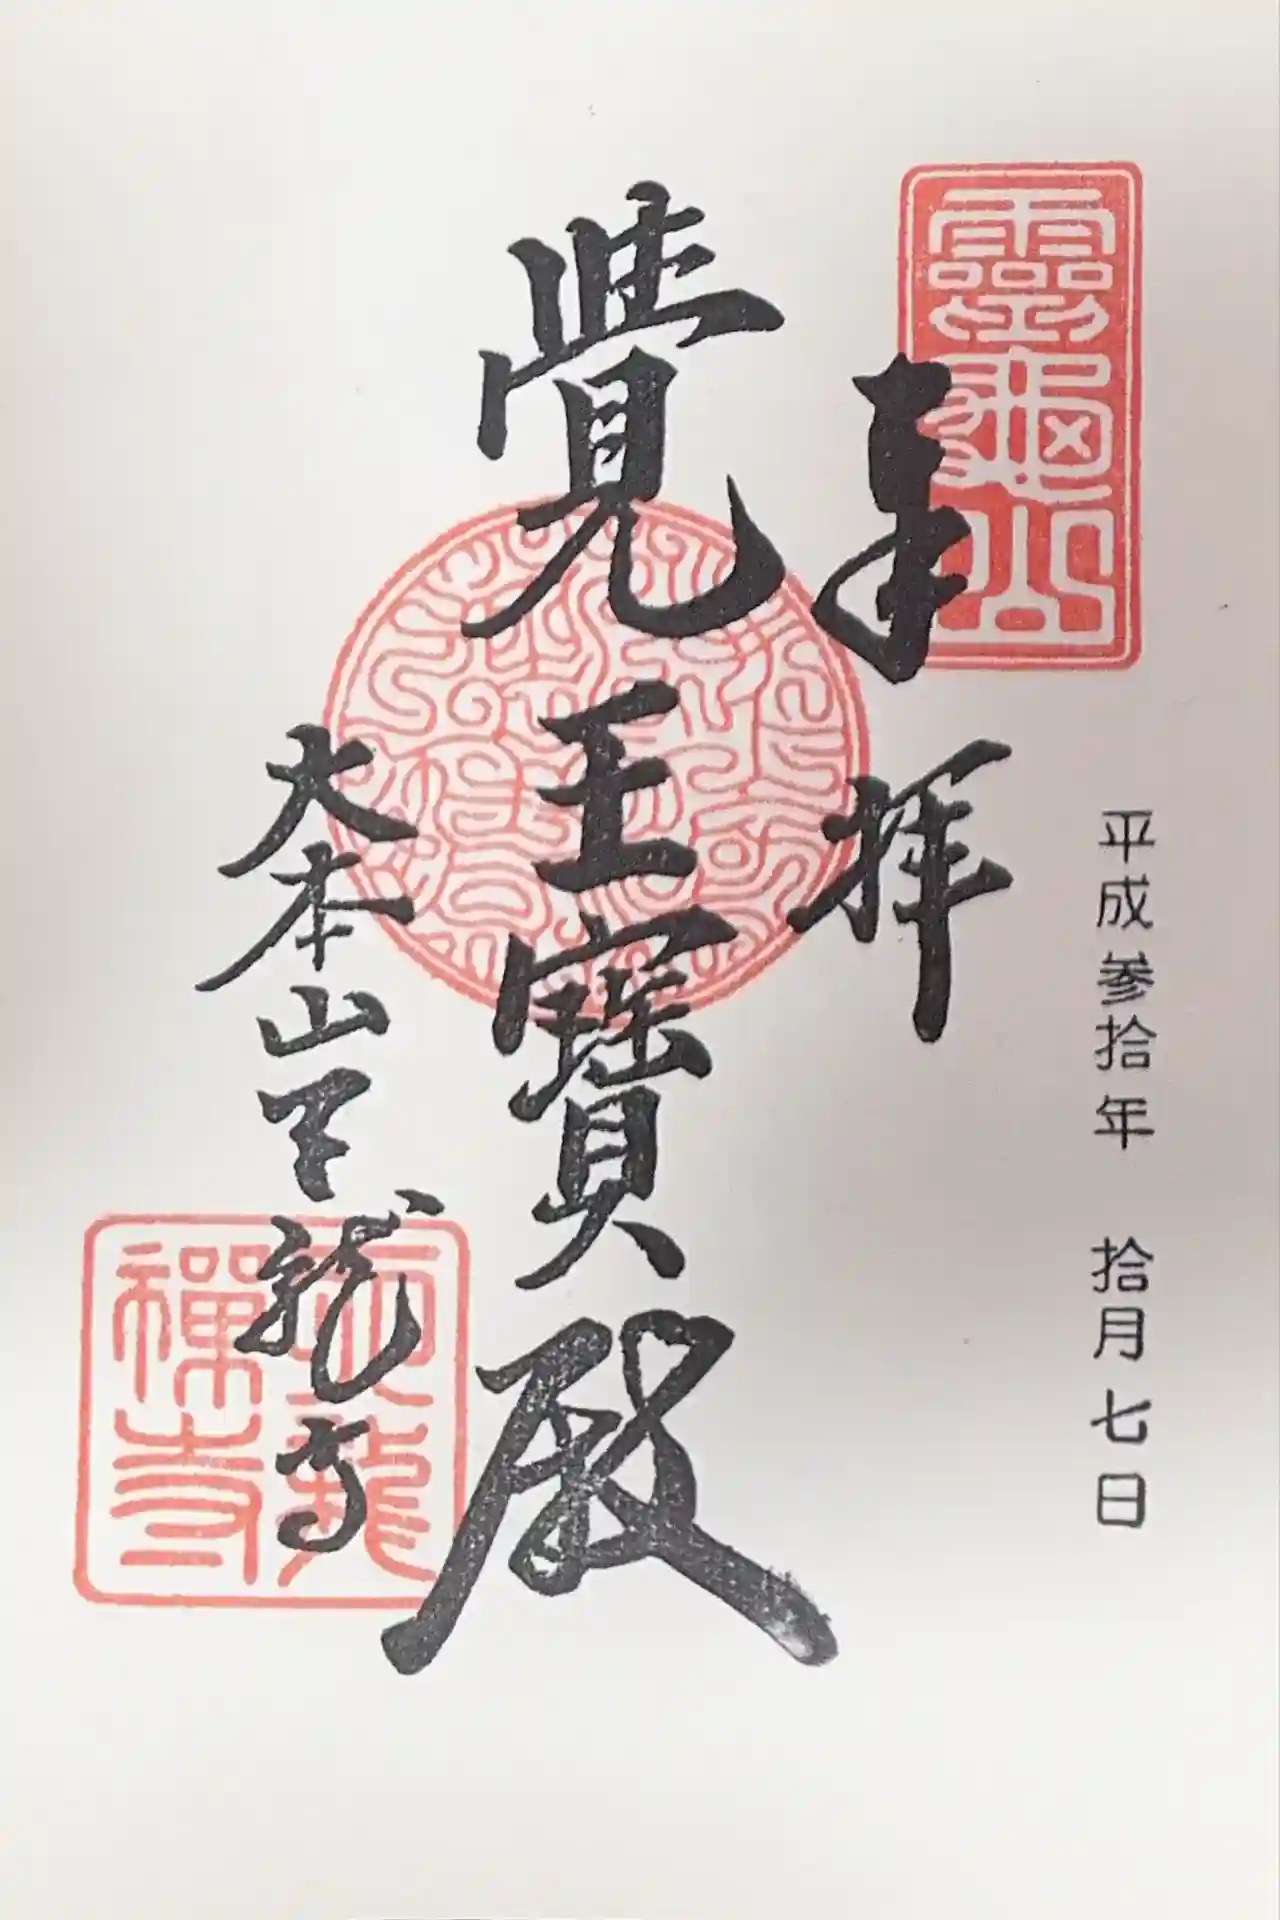 平成参拾年 拾月七日
靈龜山
奉拝
覺王寳殿
大本山天龍寺
天龍禅寺